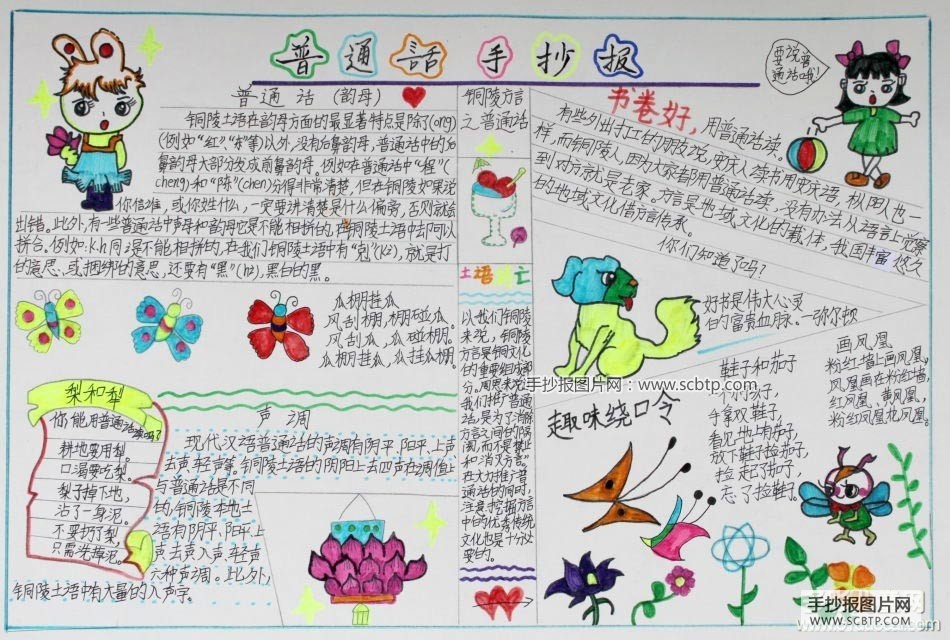 普通话手抄报
要说普
通话哦!
普通话（韵母）
铜陵土语在韵母方面的最显著特点是除了(ong)
(例如"红"、"东"等)以外,没有后鼻韵母,普通话中的后
鼻韵母大部分发成前鼻韵母。例如在普通话中"程"
(cheng)和"陈"(chen)分得非常清楚,但在铜陵如果说
你信谁,或你姓什么,一定要讲清楚是什么偏旁,否则就会
出错。此外,有一些普通话中声母和韵母它是不能相拼的,在铜陵土语中却可以
拼合。例如:k.h同
是不能相拼的,在我们铜陵土语中有
就是打
的意思,或捆绑的意思,还要有"黑"
黑白的黑。
瓜棚挂瓜
瓜棚挂瓜,瓜挂瓜棚。
风刮棚,棚碰瓜。
风刮瓜,瓜碰棚。
梨和犁
你能用普通话读吗?
耕地要用犁。
口渴要吃梨。
梨子掉下地,
沾了一身泥。
不要扔了梨
只需洗掉泥。
声调
现代汉语普通话的声调有阴平、阳平、上声
去声、轻声等,铜陵土语的阴阳上去四声在调值上
与普通话是不同
的,铜陵本地土
语有阴平、阳平、上
声、去声、入声、轻声
六种声调。此外,
铜陵土语中有大量的入声字。
铜陵方言
之普通话
土语 亡
以我们铜陵
来说,铜陵
方言是铜文化
的重要组成部
分。周恩来说
我们推广普通
话,是为了消除
方言之间的隔
阂,而不是禁止
和消灭方言"。
在大力推广普
通话的同时,
注意挖掘方言
中的优秀传统
文化也是十分必
要的。
书卷好,用普通话读。
有些外出打工的朋友说,
人也一
样,而铜陵人,因为大家都用普通话读,没有办法从语言上觉察
到对方就是老家。方言是地域文化的载体,我国丰富悠久
的地域文化借方言传承。
你们知道了吗?
好书是伟大心灵
的富贵血脉。—弥尔顿
手抄报图片网:www.scbtp.com
趣味绕口令
鞋子和茄子
手拿双鞋子,
看见地上茄子,
放下鞋子捡茄子,
捡起茄子,
忘了捡鞋子。
画凤凰
粉红墙上画凤凰,
凤凰画在粉红墙,
红凤凰、黄凤凰,
粉红凤凰花凤凰。
手抄报图片网
WWW.SCBTP.COM